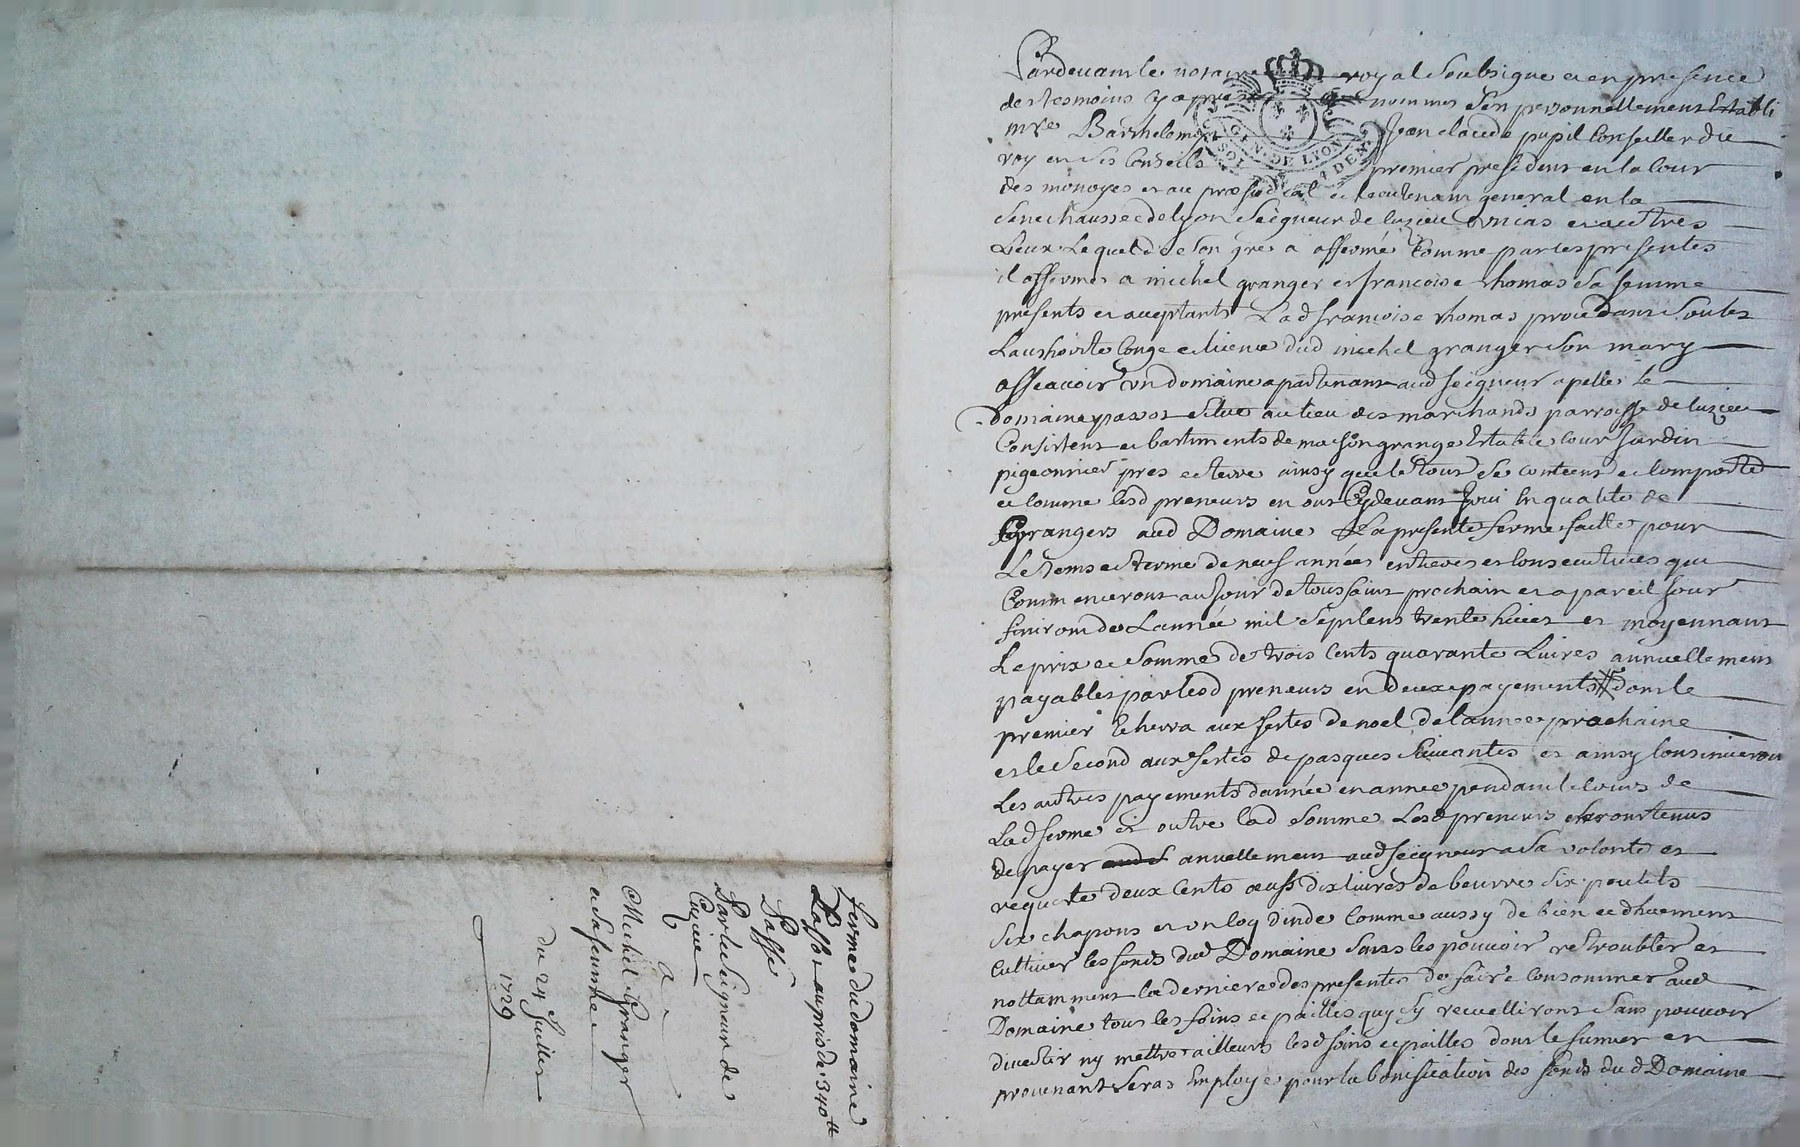 Pardevant le notaire royal soubsigne et en presence
des tesmoins cy apres nommes s'en personnellement establi
mre Barthelemy Jean claude pupil Conseiller du
roy en ses Conseils premier president en la Cour
des monoyes et au presidial et lieutenant general en la
Senechaussee de lyon Seigneur de luzieu et autres
Lieux Lequel de son gre a affermé Comme par ces presentes
il afferme a michel granger et francoise thomas sa femme
presents et aceptants Lad francoise thomas procedant soubs
Lauthorite Conge et licence dud michel granger son mary
assavoir un domaine apartenant aud seigneur apelle le
domaine passot situe au lieu des marchands parroisse de luzieu
Consistent en bastiments de maison grange Estable cour Jardin
pigeonnier pres et terre ainsy que le tout se contient et Comporte
et Comme lesd preneurs en ont Cydevant Joui En qualite de
Grangers aud Domaine La presente ferme faitte pour
Le tems et terme de neuf années entieres et Consecutives qui
Commenceront au Jour de toussaint prochain et a pareil Jour
finiront de Lannée mil sept cens trente huict et moyennant
Le prix et Somme de trois Cents quarante Livres annuellement
payables par lesd preneurs en deux payements # dont le
premier Echerra aux festes de noel de lannee prochaine
et le second aux festes de pasques suivantes et ainsy Continueront
Les autres payements dannée en annee pendant le Cours de
Lad ferme et outre lad somme Lesd preneurs seront tenus
de payer annuellement aud seigneur a sa volonté et
requeste deux Cents œufs dix livres de beurre six poulets
Six chapons et un coq dinde Comme aussy de bien et dhuement
Cultiver les fonds dud Domaine sans les pouvoir retroubler et
nottamment la derniere des presentes de faire Consommer aud
Domaine tous les foins et pailles quy sy recuelliront sans pouvoir
divertir ny mettre ailleurs lesd foins et pailles dont le fumier en
provenant seras Employe pour la bonification des fonds dud Domaine
GEN. DE LYON
SOL DEN
ferme du domaine
Passot au pris de 340 tt
Passé
Par le Seigneur de
Cuzieu
a
Michel Granger
et sa femme
du 24 Juillet
1729